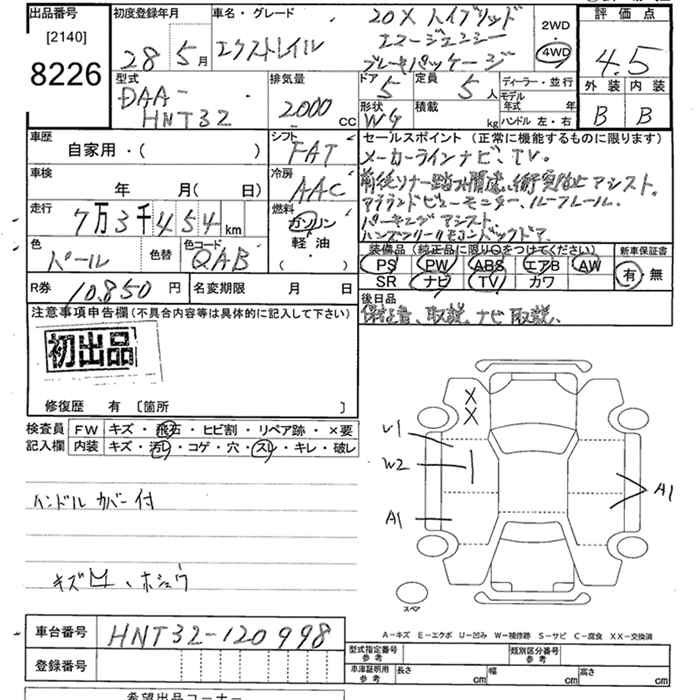 出品番号
[2140]
8226
初度登録年月
28 5月
車名・グレード
エクストレイル
20X ハイブリッド
エマージェンシー
ブレーキパッケージ
2WD
4WD
評価点
4.5
外装 内装
B B
型式
DAA-
HNT32
排気量
2000 cc
ドア 5
定員 5人
形状 WG
積載 kg
ディーラー・並行
モデル年式 年
ハンドル 左・右
車歴
自家用・( )
シフト FAT
車検
年 月( 日)
冷房 AAC
走行
7万3千454km
燃料
ガソリン
軽油
・( )
色 パール
色替
色コード QAB
R券 10,850円
名変期限 月 日
セールスポイント (正常に機能するものに限ります)
メーカーラインナビ、TV。
アラウンドビューモニター、ルーフレール。
パーキングアシスト。
ハンズフリーリモコンバックドア。
装備品(純正品に限り〇をつけてください) 新車保証書
PS PW ABS エアB AW
SR ナビ TV カワ
有・無
後日品
保証書、取説、ナビ取説、
注意事項申告欄(不具合内容等は具体的に記入して下さい)
初出品
修復歴 有 [箇所 ]
検査員記入欄
FW キズ・飛石・ヒビ割・リペア跡・×要
内装 キズ・汚レ・コゲ・穴・スレ・キレ・破レ
ハンドルカバー付
キズ 凹、ホシュウ
X
X
U1
W2
A1
A1
スペア
A-キズ E-エクボ U-凹み W-補修跡 S-サビ C-腐食 XX-交換済
車台番号 HNT32-120998
登録番号
型式指定番号 参考
類別区分番号 参考
車庫証明用 参考 長さ cm 幅 cm 高さ cm
希望出品コーナー